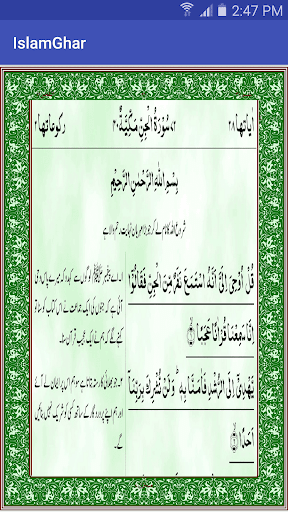 2:47 PM
IslamGhar
اٰیاتھا ۲۸ ۷۲ سُوْرَةُ الْجِنِّ مَكِّيَّةٌ ۴۰ رکوعاتھا ۲
بِسْمِ اللهِ الرَّحْمٰنِ الرَّحِيْمِ
شروع اللہ کا نام لے کر جو بڑا مہربان نہایت رحم والا ہے
قُلْ اُوْحِيَ اِلَيَّ اَنَّهُ اسْتَمَعَ نَفَرٌ مِّنَ الْجِنِّ فَقَالُوْۤا
اِنَّا سَمِعْنَا قُرْاٰنًا عَجَبًا ۙ﴿۱﴾
يَّهْدِيْۤ اِلَى الرُّشْدِ فَاٰمَنَّا بِهٖ ؕ وَلَنْ نُّشْرِكَ بِرَبِّنَاۤ
اَحَدًا ۙ﴿۲﴾
۱۔ اے پیغمبر ﷺ لوگوں سے کہدو کہ میرے پاس وحی
آئی ہے کہ جنوں کی ایک جماعت نے اس کتاب کو سنا تو
کہنے لگے کہ ہم نے ایک عجیب قرآن سنا۔
۲۔ جو بھلائی کا رستہ بتاتا ہے سو ہم اس پر ایمان لے آئے
اور ہم اپنے پروردگار کے ساتھ کسی کو شریک نہیں بنائیں
گے۔